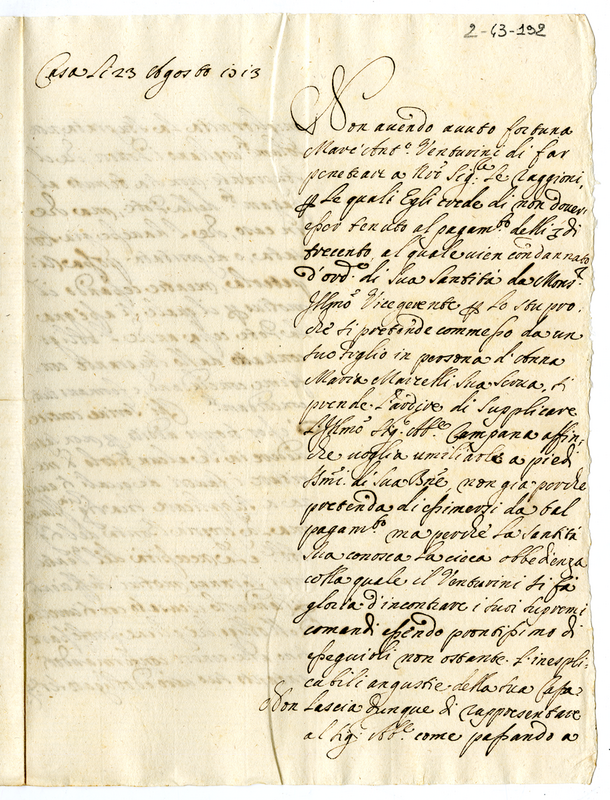 2-43-192
Casa Li 23 Agosto 1313
Non avendo avuto fortuna
Marc'Ant.º Venturini di far
penetrare a Nrõ Sig.re Le raggioni,
Le quali Egli crede di non dover
esser tenuto al pagam.to delli di
trecento, al quale vien condannato
d'ord.e di Sua Santità da Mons.r
Illmõ Vicegerente Lo stupro
che si pretende commesso da un
suo figlio in persona d'Anna
Maria Marcelli sua serva, si
prende l'ardire di supplicare
L'Illmõ Sig.r Abb.e Campana affin-
che voglia umiliarle a piedi
Ssmi. di Sua Bne, non già perche
pretenda di esimersi da tal
pagam.to ma perche La Santità
Sua conosca La cieca obbedienza
colla quale il Venturini si fà
gloria d'incontrare i suoi supremi
comandi essendo prontissimo di
esseguirli non ostante L'inespli-
cabili angustie della sua Casa.
Non Lascia dunque di rappresentare
al Sig.r Abb.e come passando a